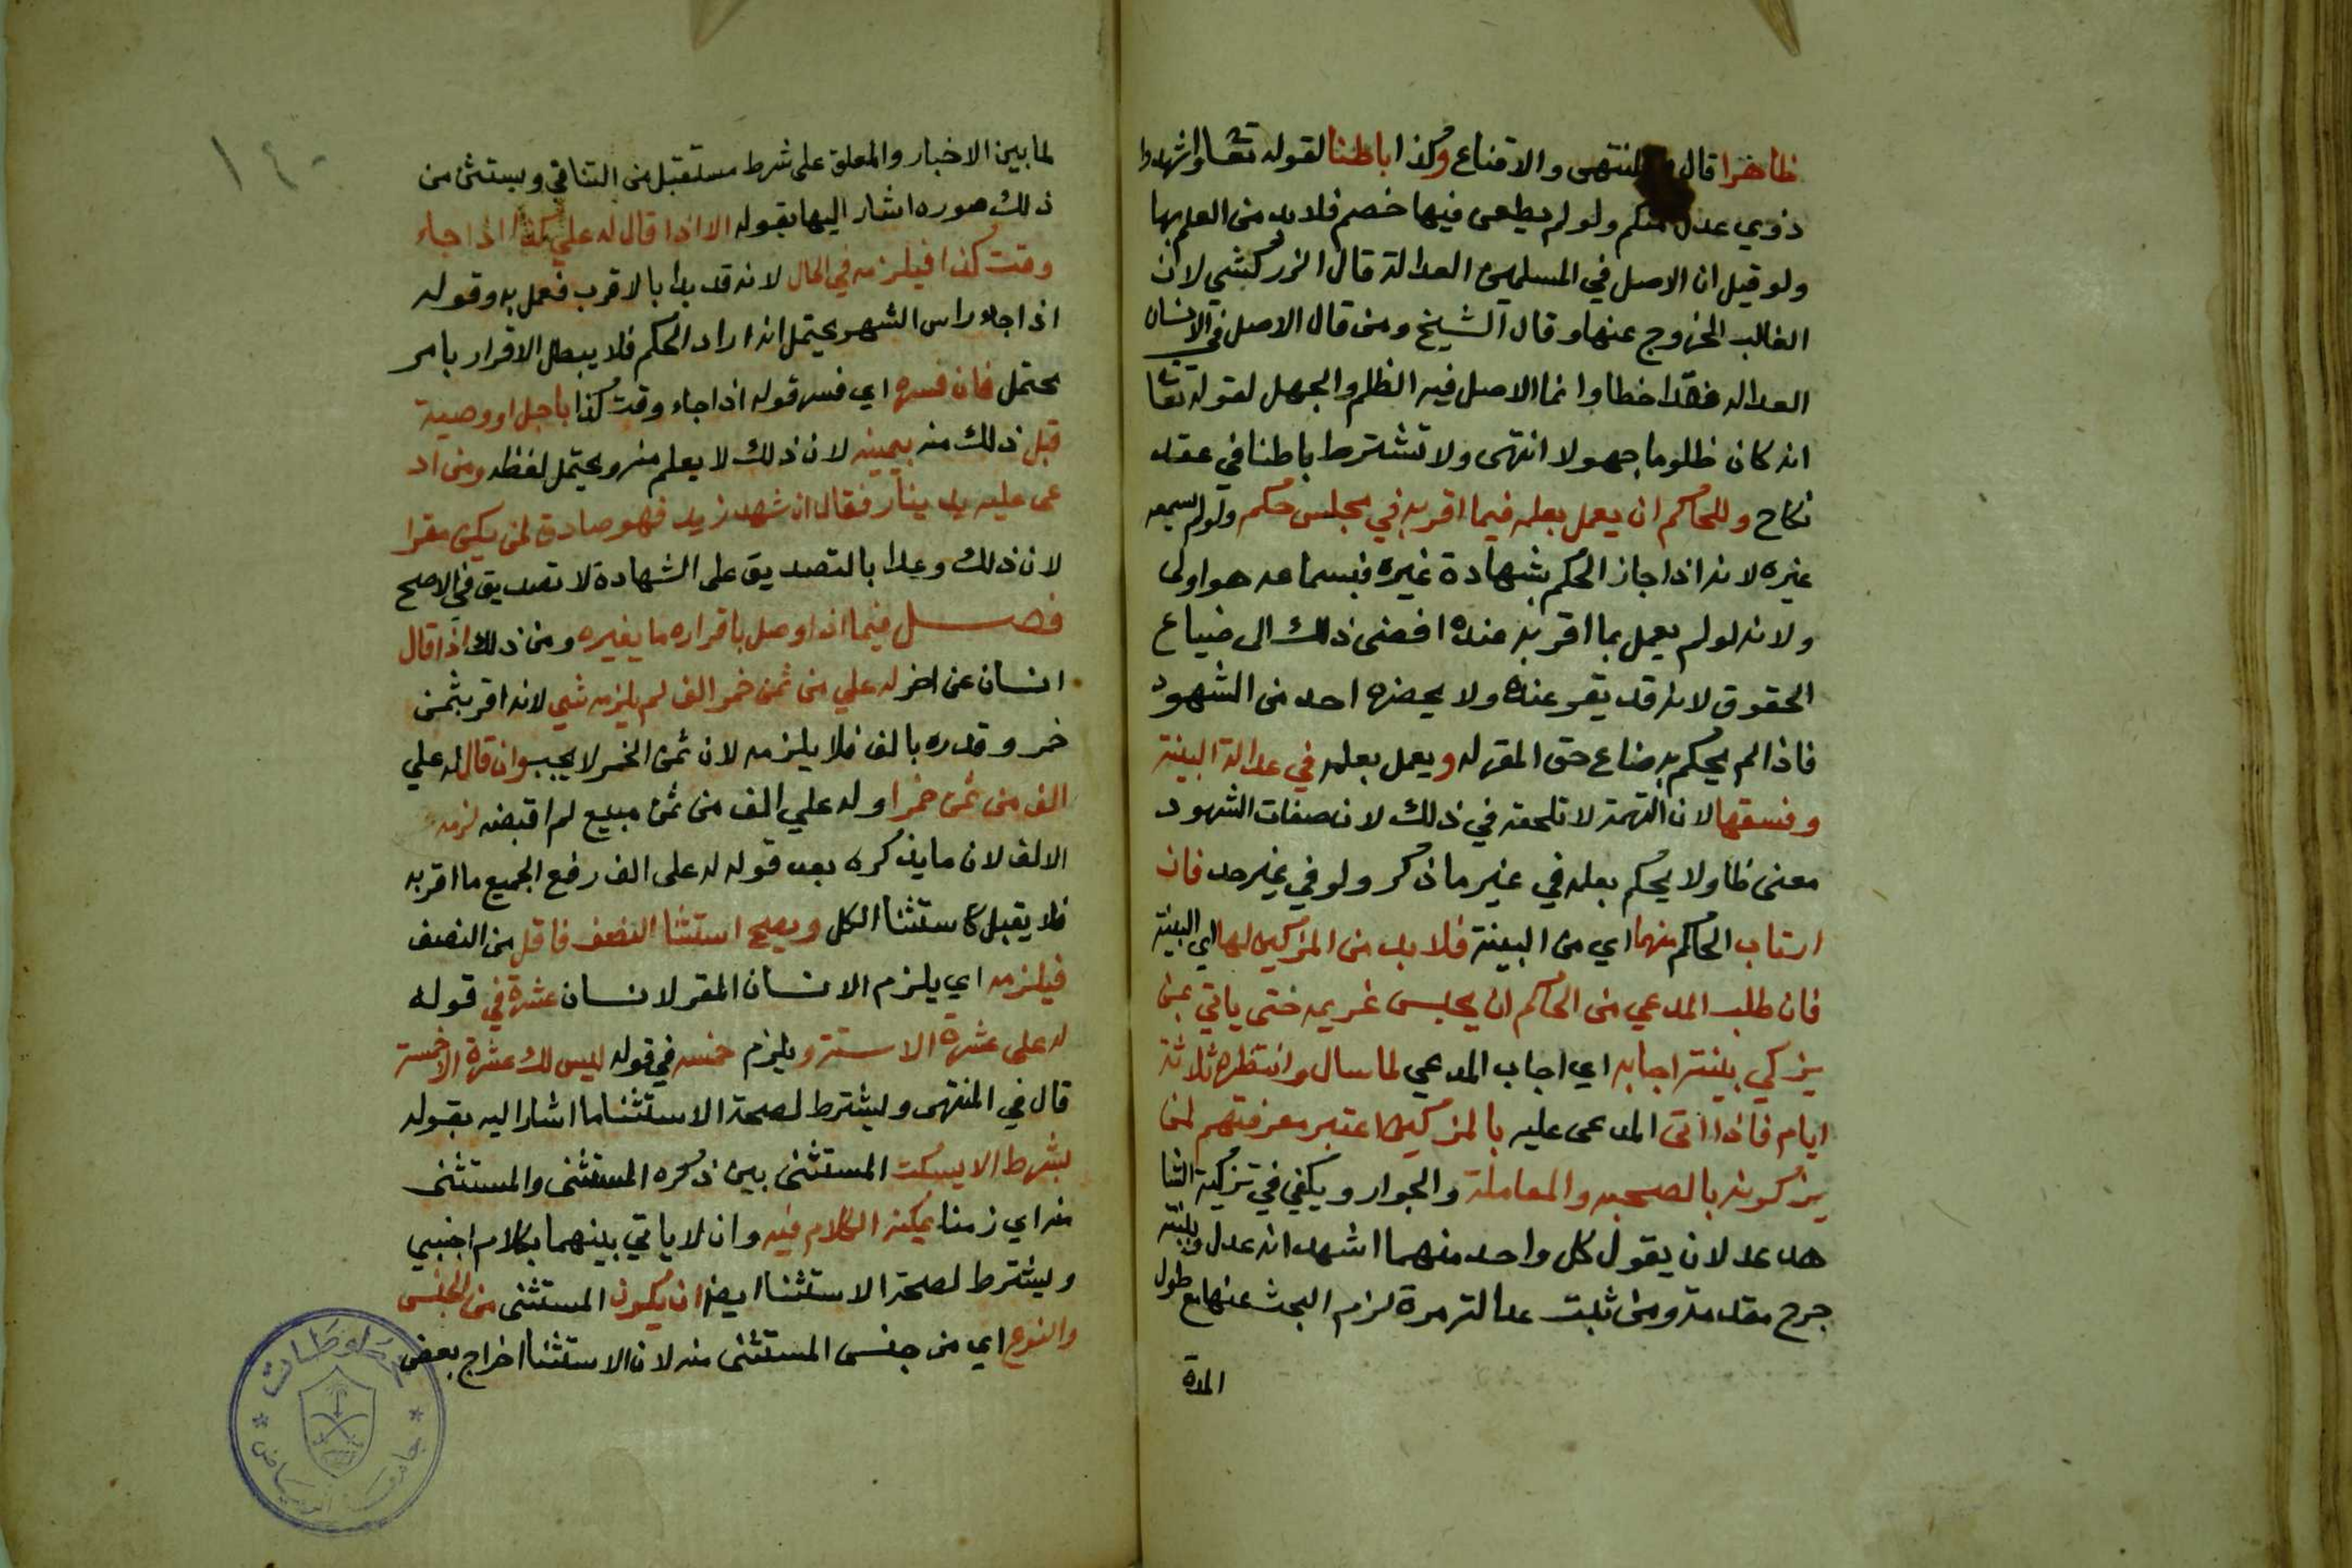 ظاهرا قال المنتهى والاقناع وكذا باطنا لقوله تعا واشهدوا
ذوي عدل منكم ولو لم يطعن فيها خصم فلابد من العلم بها
ولو قيل ان الاصل في المسلمين العدالة قال الزركشي لان
الغالب الخروج عنها وقال الشيخ ومن قال الاصل في الانسان
العداله فقد اخطا وانما الاصل فيه الظلم والجهل لقوله تعا
انه كان ظلوما جهولا انتهى ولا تشترط باطنا في عقد
نكاح وللحاكم ان يعمل بعلمه فيما اقر به في مجلس حكمه ولو لم يسمعه
غيره لانه اذا جاز الحكم بشهادة غيره فبسماعه هو اولى
ولانه لو لم يعمل بما اقر به عنده افضى ذلك الى ضياع
الحقوق لانه قد يقر عنده ولا يحضره احد من الشهود
فاذا لم يحكم به ضاع حق المقر له ويعمل بعلمه في عدالة البينة
وفسقها لان التهمة لا تلحقه في ذلك لان صفات الشهود
معنى ظا ولا يحكم بعلمه في غير ما ذكر ولو في غير حد فان
ارتاب الحاكم منها اي من البينة فلا بد من المزكين لها اي البينة
فان طلب المدعي من الحاكم ان يحبس غريمه حتى ياتي بمن
يزكي بينته اجابه اي اجاب المدعي لما سال وانتظره ثلاثة
ايام فاذا اتى المدعى عليه بالمزكين اعتبر معرفتهم لمن
يزكونه بالصحبه والمعاملة والجوار ويكفي في تزكية الشا
هد عدلان يقول كل واحد منهما اشهد انه عدل وبينة
جرح مقدمة ومن ثبت عدالته مرة لزم البحث عنها مع طول
المدة
١٤٠
لما بين الاخبار والمعلق على شرط مستقبل من التنافي ويستثنى من
ذلك صوره اشار اليها بقوله الا اذا قال له علي كذا اذا جاء
وقت كذا فيلزمه في الحال لانه قد بدا بالاقرب فعمل به وقوله
اذا جاء راس الشهر يحتمل انه اراد الحكم فلا يبطل الاقرار بامر
محتمل فان فسره اي فسر قوله اذا جاء وقت كذا باجل او وصية
قبل ذلك منه بيمينه لان ذلك لا يعلم منه ويحتمل لفظه ومن اد
عى عليه بدينار فقال ان شهد زيد فهو صادق لمن يكن مقرا
لان ذلك وعدا بالتصديق على الشهادة لا تصديق في الاصح
فصل فيما اذا وصل باقراره ما يغيره ومن ذلك اذا قال
انسان عن اخر له علي من ثمن خمر الف لم يلزمه شي لانه اقر بثمن
خمر وقدره بالف فلا يلزمه لان ثمن الخمر لا يجب وان قال له علي
الف من ثمن خمر او له علي الف من ثمن مبيع لم اقبضه لزمه
الالف لان ما يذكره بعد قوله له على الف رفع الجميع ما اقر به
فلا يقبل كاستثنا الكل ويصح استثنا النصف فاقل من النصف
فيلزمه اي يلزم الانسان المقر لانسان عشرة في قوله
له على عشرة الا ستة ويلزم خمسه في قوله ليس لك عشرة الا خمسة
قال في المنتهى ويشترط لصحة الاستثنا ما اشار اليه بقوله
بشرط الا يسكت المستثنى بين ذكره المستثنى والمستثنى
منه اي زمنا يمكنه الكلام فيه وان لا ياتي بينهما بكلام اجنبي
ويشترط لصحة الاستثنا ايضا ان يكون المستثنى من الجنس
والنوع اي من جنس المستثنى منه لان الاستثنا اخراج بعض